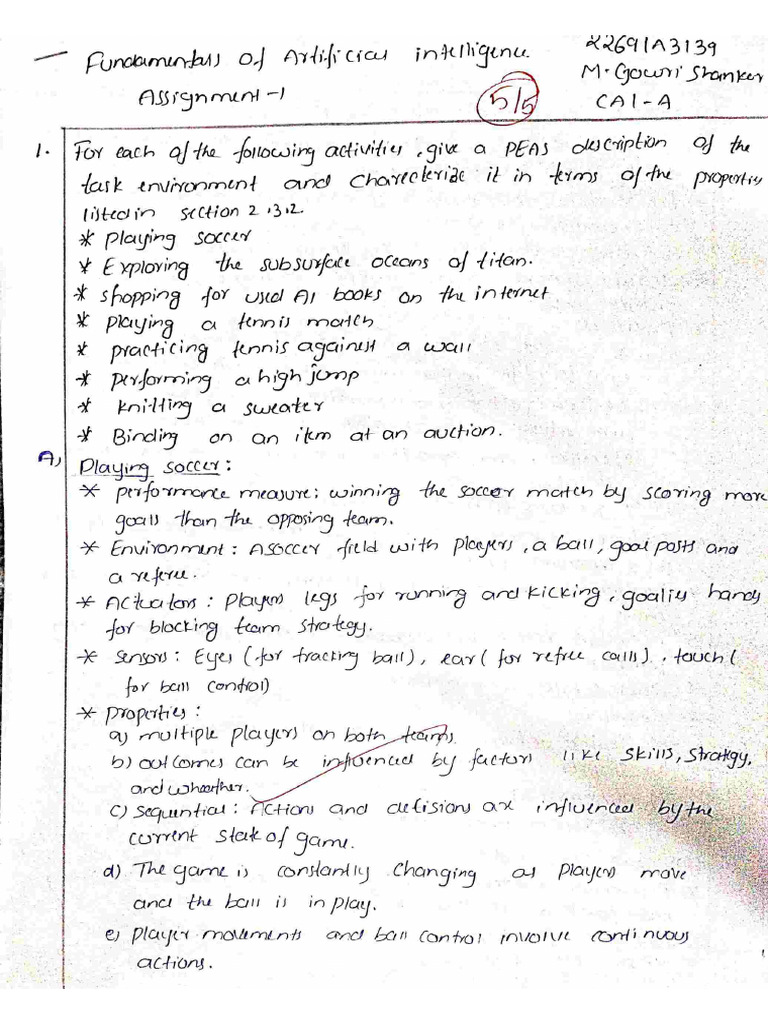 Fundamentals of Artificial intelligence
22691A3139
M. Gowri Shanker
Assignment-1
5/5
CAI-A
1. For each of the following activities, give a PEAS description of the
task environment and charecterize it in terms of the properties
listed in section 2.3.2.
* Playing soccer
* Exploring the subsurface oceans of titan.
* shopping for used AI books on the internet
* playing a tennis match
* practicing tennis against a wall
* performing a high jump
* knitting a sweater
* Binding on an item at an auction.
A) Playing soccer:
* performance measure: winning the soccer match by scoring more
goals than the opposing team.
* Environment: A soccer field with players, a ball, goal posts and
a referee.
* Actuators: players legs for running and kicking, goalies hands
for blocking team strategy.
* sensors: Eyes (for tracking ball), ear (for refree calls), touch (
for ball control)
* properties:
a) multiple players on both teams.
b) outcomes can be influenced by factors like skills, strategy,
and
c) sequential: Actions and decisions are influenced by the
current state of game.
d) The game is constantly changing as players move
and the ball is in play.
e) player movements and ball control involve continuous
actions.